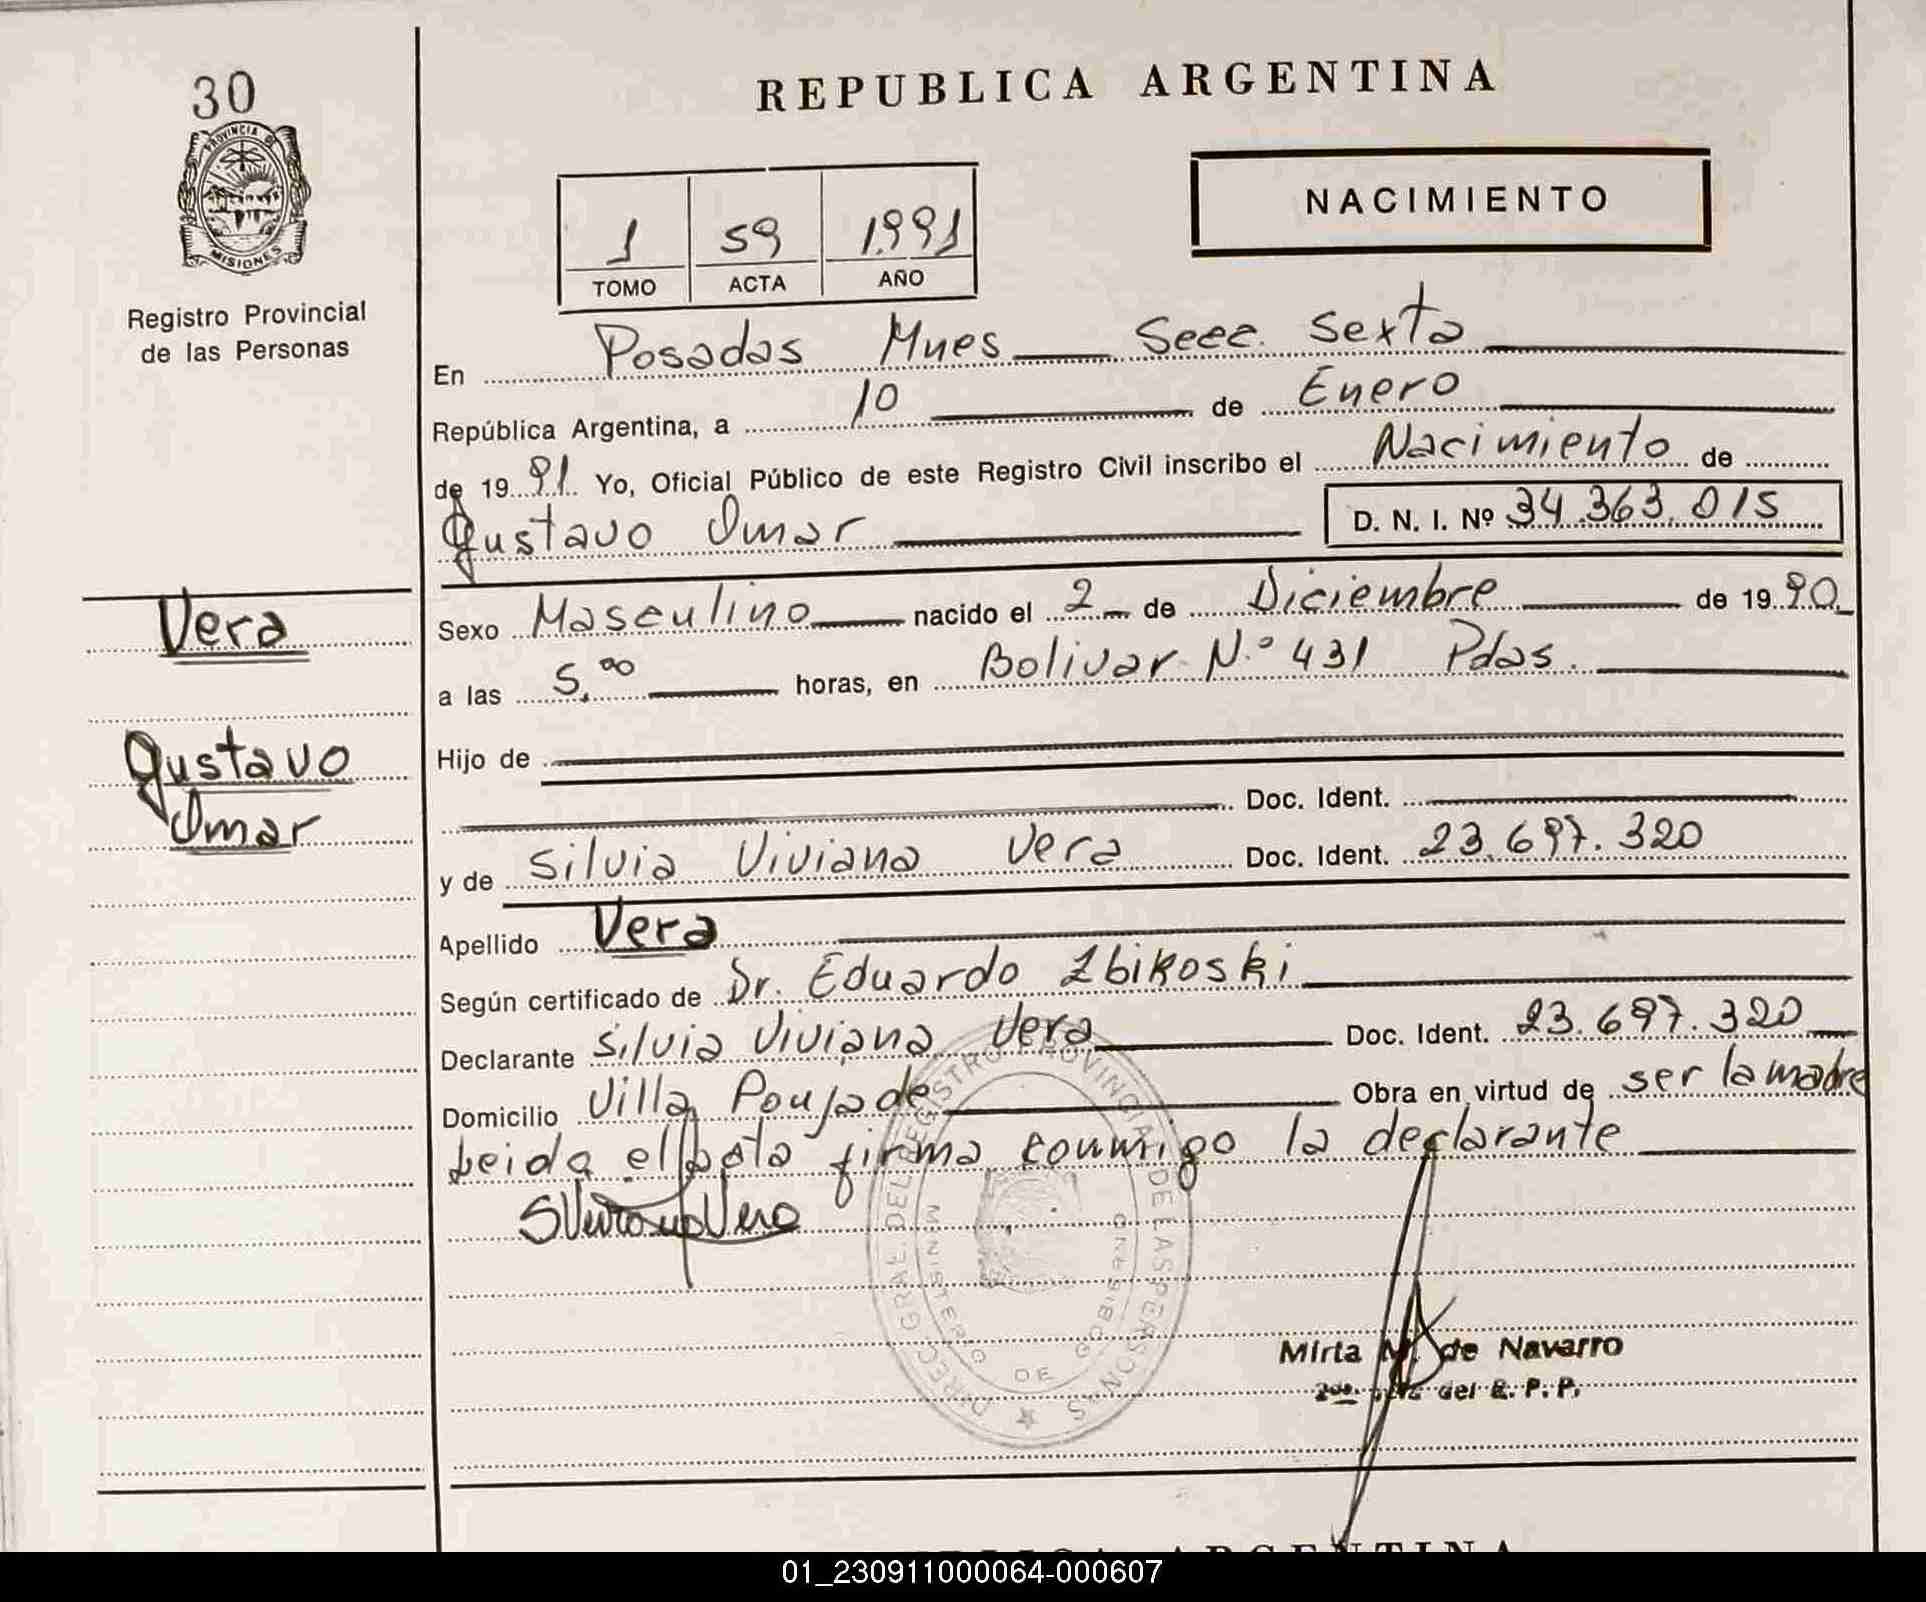 30
PROVINCIA DE
MISIONES
Registro Provincial
de las Personas
Vera
Gustavo
Omar
REPUBLICA ARGENTINA
NACIMIENTO
1 59 1.991
TOMO ACTA AÑO
En Posadas Mnes Secc. Sexta
República Argentina, a 10 de Enero
de 19 91. Yo, Oficial Público de este Registro Civil inscribo el Nacimiento de
Gustavo Omar D. N. I. Nº 34.363.015
Sexo Masculino nacido el 2 de Diciembre de 19 90
a las 5,00 horas, en Bolivar N.º 431 Pdas.
Hijo de
Doc. Ident.
y de Silvia Viviana Vera Doc. Ident. 23.697.320
Apellido Vera
Según certificado de Dr. Eduardo Zbikoski
Declarante Silvia Viviana Vera Doc. Ident. 23.697.320
Domicilio Villa Poujade Obra en virtud de ser la madre
Leida el acta firma conmigo la declarante
DIREC. GRAL. DEL REGISTRO PROVINCIAL DE LAS PERSONAS
MINISTERIO DE GOBIERNO
Mirta M. de Navarro
del R. P. P.
REPUBLICA ARGENTINA
01_230911000064-000607